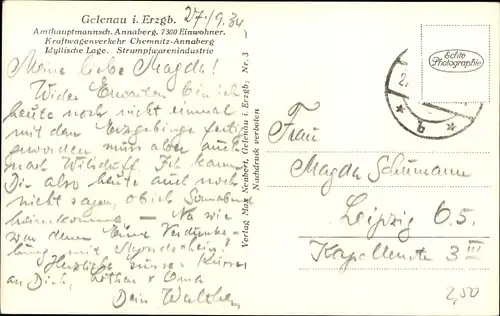 Gelenau i. Erzgb. 27/9.34
Amthauptmannsch. Annaberg, 7300 Einwohner.
Kraftwagenverkehr Chemnitz-Annaberg
Idyllische Lage. Strumpfwarenindustrie
Meine liebe Magda!
Wider Erwarten bin ich
heute noch nicht einmal
mit dem Erzgebirge fertig
geworden muss aber auch
nach Wilsdruff. Ich kann
Dir also heute auch noch
nicht sagen, ob ich Sonnabend
heimkomme – Na wie
war denn Eure Verdunke-
lung mit Mondschein?
Herzliche Küsse
an Dich, Lothar & Oma
Dein Walther
Verlag Max Neubert, Gelenau i. Erzgeb. Nr. 3
Nachdruck verboten
Echte
Photographie
Frau
Magda Schumann
Leipzig O5.
Kapellenstr. 3 III
2,50